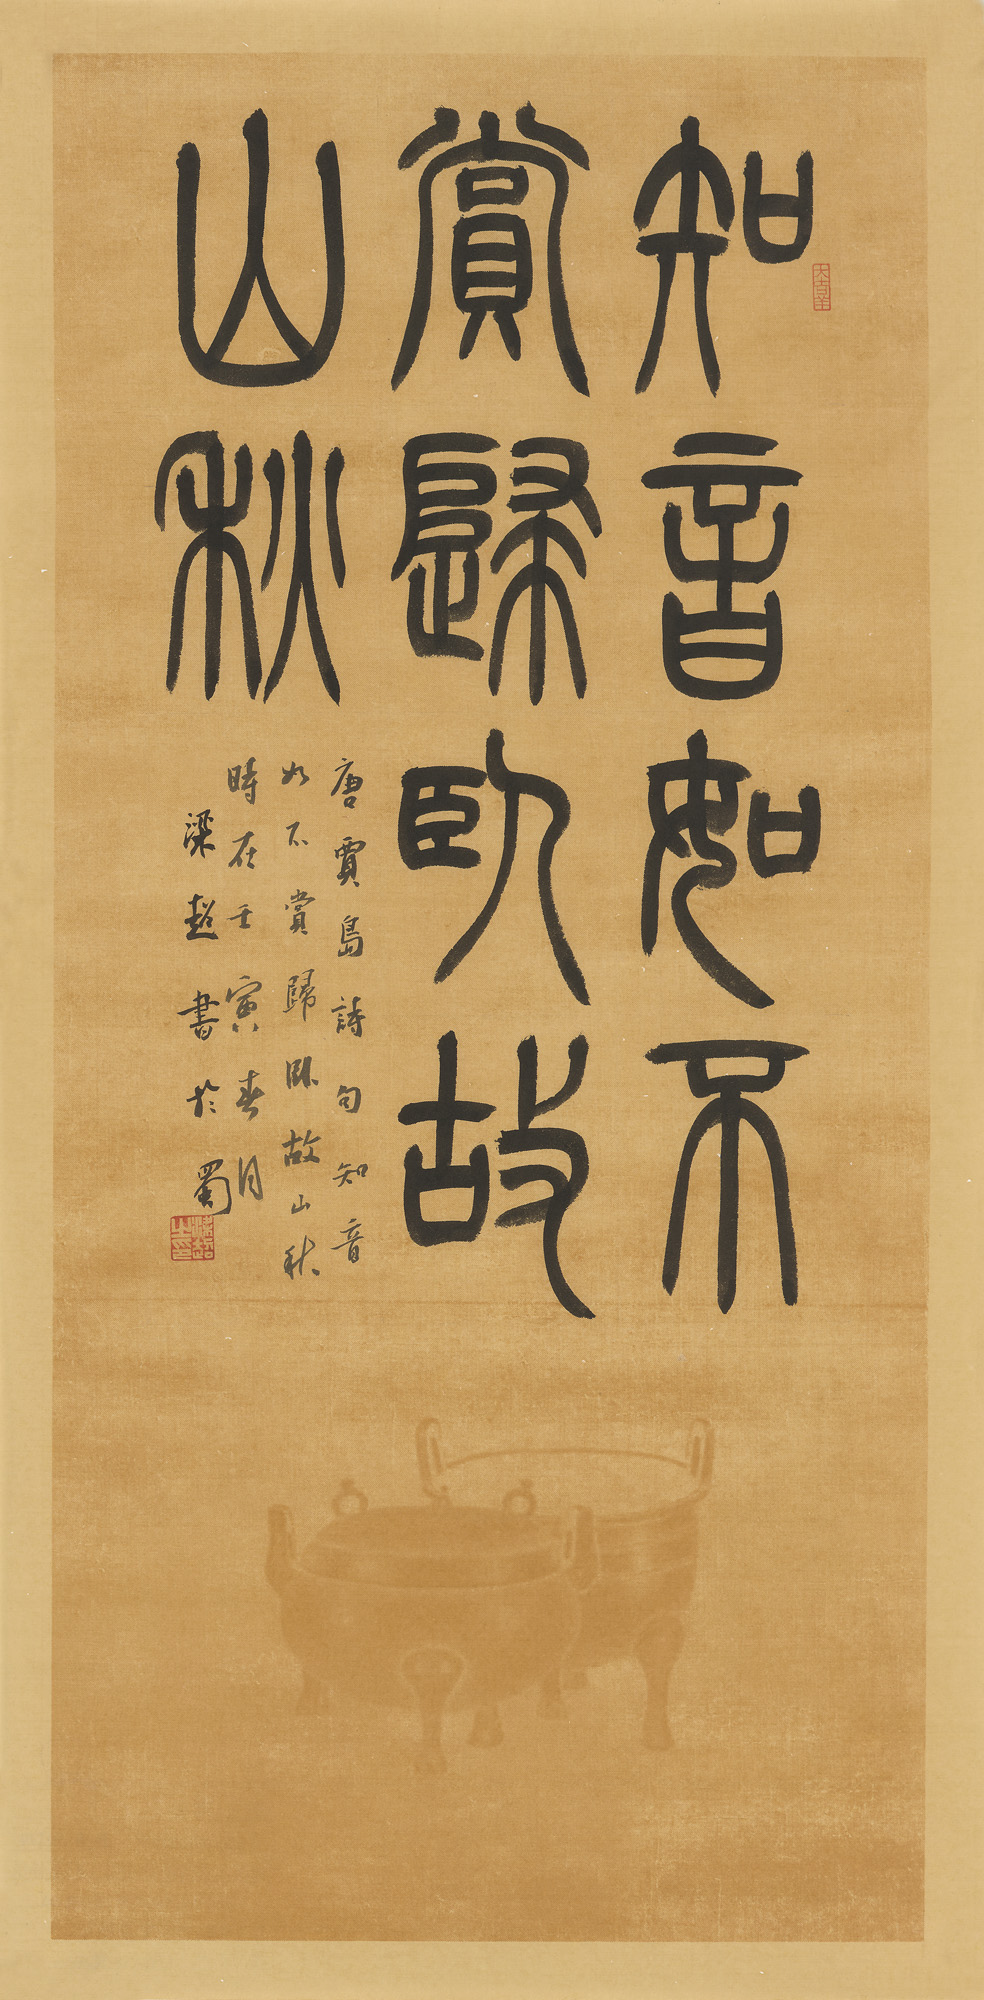 知音如不
賞歸臥故
山秋
唐賈島詩句知音
如不賞歸臥故山秋
時在壬寅春月
梁超書於蜀
大吉羊
梁超之印